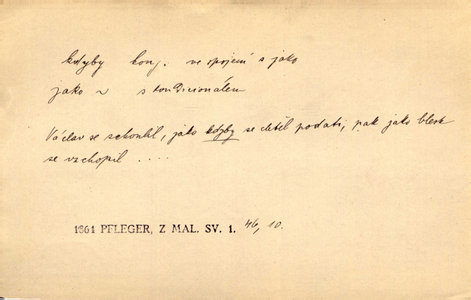 kdyby konj. ve spojení s jako
jako ~ s kondicionálem
Václav se schoulil, jako kdyby se chtěl poddati, pak jako blesk
se vzchopil ....
1861 PFLEGER, Z MAL. SV. 1. 46, 10.